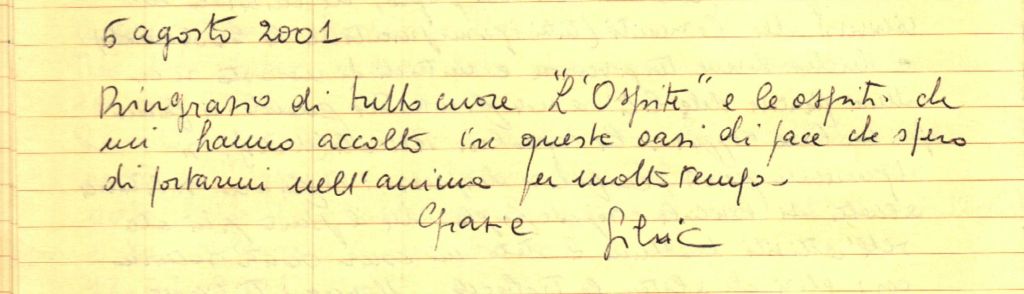 5 agosto 2001
Ringrazio di tutto cuore "L'Ospite" e le ospiti che
mi hanno accolto in queste oasi di pace che spero
di portarmi nell'anima per molto tempo.
Grazie Silvia